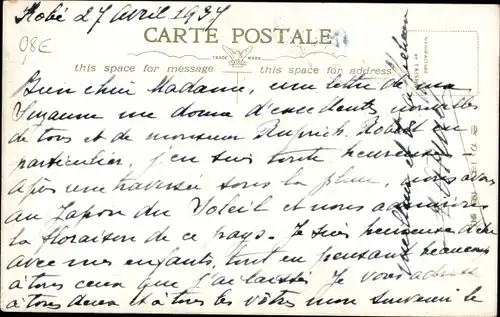 Kobé 27 Avril 1937
08E
CARTE POSTALE
TRADE MARK
this space for message
this space for address
Bien chère Madame, une lettre de ma
Suzanne me donna d'excellentes nouvelles
de tous et de monsieur Ruprich Robert en
particulier, j'en suis toute heureuse.
Après une traversée sous la pluie, nous avons
au Japon du Soleil et nous admirons
la floraison de ce pays. Je suis heureuse d'être
avec mes enfants, tout en pensant beaucoup
à tous ceux que j'ai laissés. Je vous adresse
à tous deux et à tous les vôtres mon souvenir le